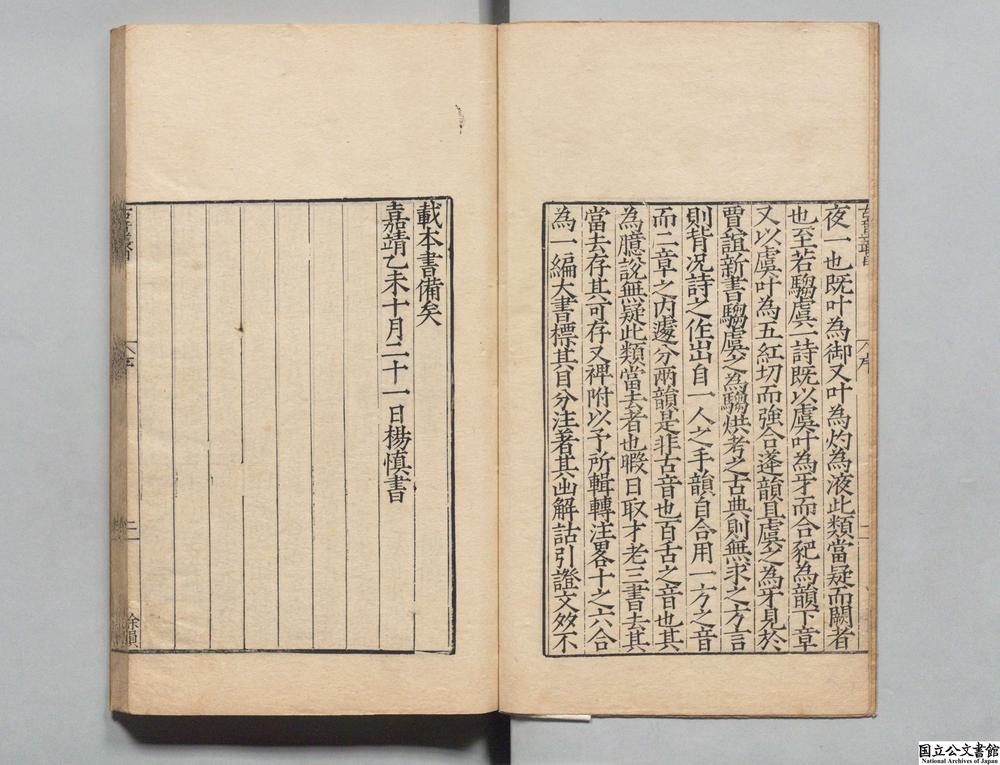 夜一也既叶為御又叶為灼為液此類當疑而闕者
也至若騶虞一詩既以虞叶為牙而合豝為韻下章
又以虞叶為五紅切而強合蓬韻且虞之為牙見於
賈誼新書騶虞之為騶烘考之古典則無求之方言
則背况詩之作出自一人之手韻自合用一方之音
而二章之内遽分兩韻是非古音也百舌之音也其
為臆說無疑此類當去者也暇日取才老三書去其
當去存其可存又裨附以予所輯轉注畧十之六合
為一編大書標其目分注著其出解詁引證文㸚不
載本書備矣
嘉靖乙未十月二十一日楊慎書
序
二
余員
国立公文書館
National Archives of Japan